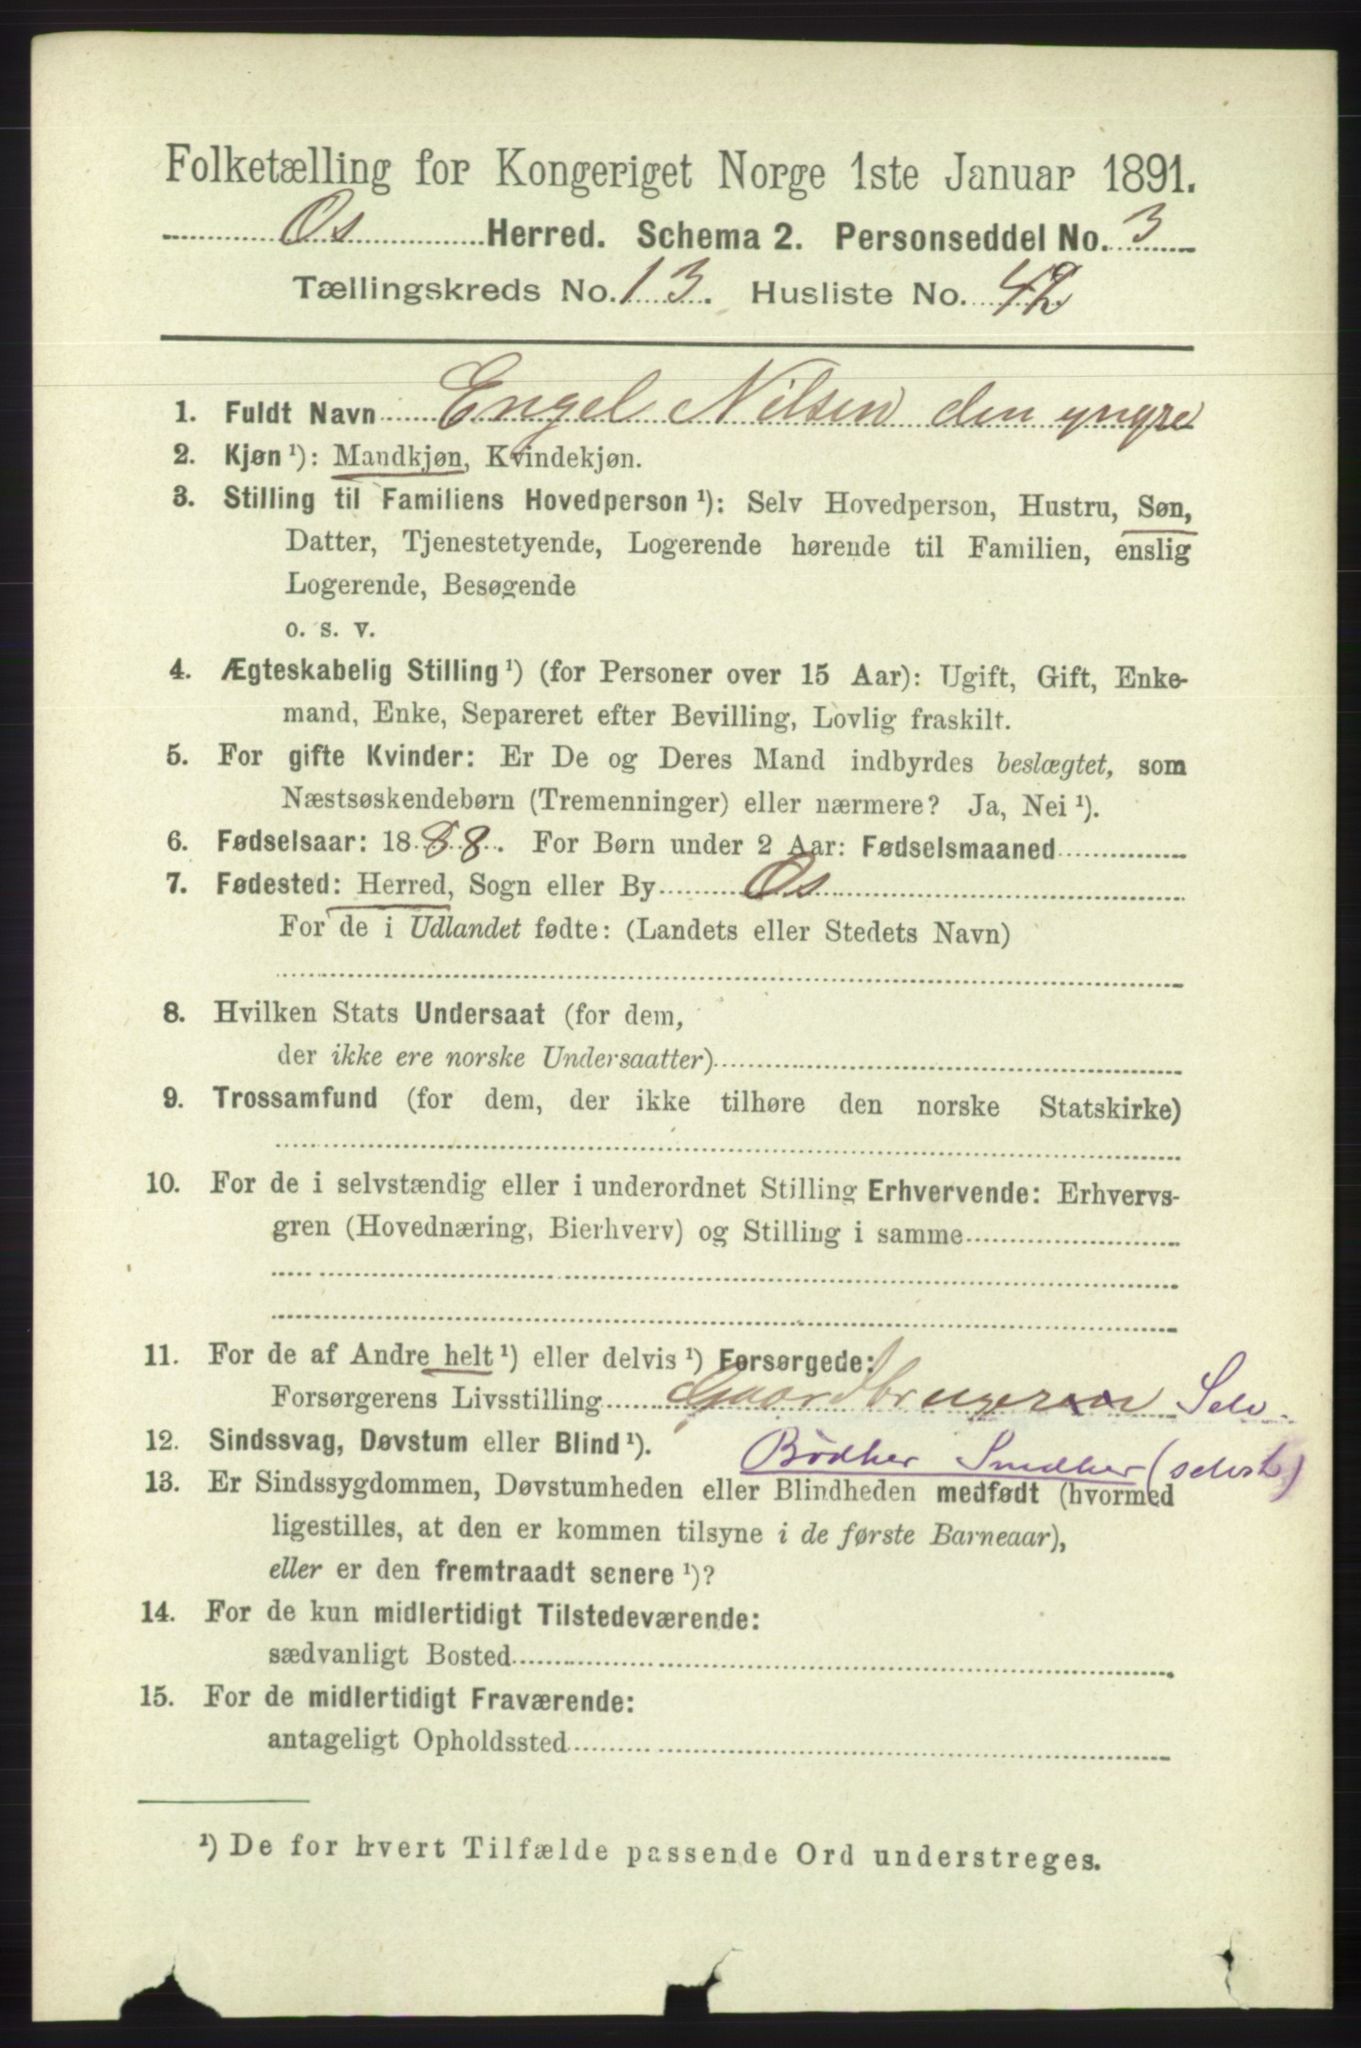 Folketælling for Kongeriget Norge 1ste Januar 1891.
Os Herred. Schema 2. Personseddel No. 3
Tællingskreds No. 13. Husliste No. 42
1. Fuldt Navn Engel Nilsen den yngre
2. Kjøn ¹): Mandkjøn, Kvindekjøn.
3. Stilling til Familiens Hovedperson ¹): Selv Hovedperson, Hustru, Søn,
Datter, Tjenestetyende, Logerende hørende til Familien, enslig
Logerende, Besøgende
o. s. v.
4. Ægteskabelig Stilling ¹) (for Personer over 15 Aar): Ugift, Gift, Enke-
mand, Enke, Separeret efter Bevilling, Lovlig fraskilt.
5. For gifte Kvinder: Er De og Deres Mand indbyrdes beslægtet, som
Næstsøskendebørn (Tremenninger) eller nærmere? Ja, Nei ¹).
6. Fødselsaar: 1888. For Børn under 2 Aar: Fødselsmaaned
7. Fødested: Herred, Sogn eller By Os
For de i Udlandet fødte: (Landets eller Stedets Navn)
8. Hvilken Stats Undersaat (for dem,
der ikke ere norske Undersaatter)
9. Trossamfund (for dem, der ikke tilhøre den norske Statskirke)
10. For de i selvstændig eller i underordnet Stilling Erhvervende: Erhvervs-
gren (Hovednæring, Bierhverv) og Stilling i samme
11. For de af Andre helt ¹) eller delvis ¹) Forsørgede:
Forsørgerens Livsstilling Gaardbruger Selv.
12. Sindssvag, Døvstum eller Blind ¹). Bødker Smedker (selvst)
13. Er Sindssygdommen, Døvstumheden eller Blindheden medfødt (hvormed
ligestilles, at den er kommen tilsyne i de første Barneaar),
eller er den fremtraadt senere ¹)?
14. For de kun midlertidigt Tilstedeværende:
sædvanligt Bosted
15. For de midlertidigt Fraværende:
antageligt Opholdssted
¹) De for hvert Tilfælde passende Ord understreges.